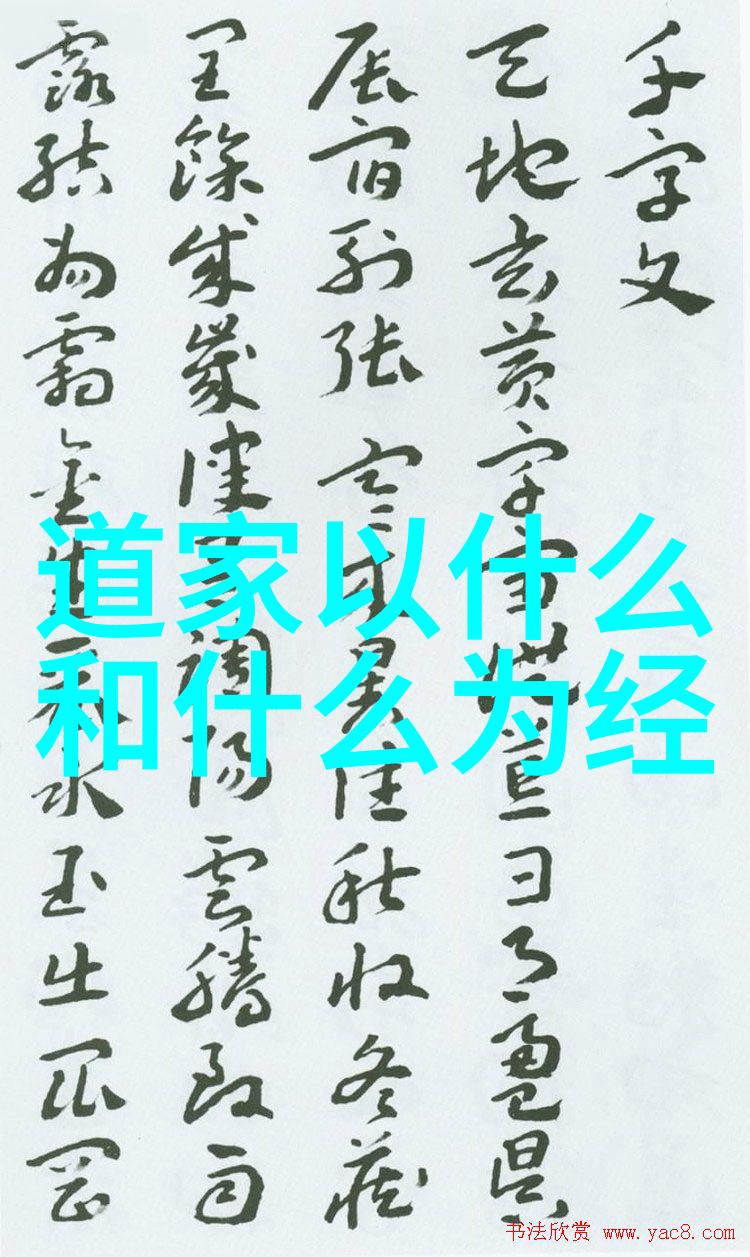 千字文
天地玄黄宇宙洪荒日月盈昃
辰宿列張寒来暑往秋收冬藏
閏餘成歲律吕調陽雲騰致雨
露結為霜金生麗水玉出崑岡
道家以什么
和什么为经
书法欣赏 www.yac8.com